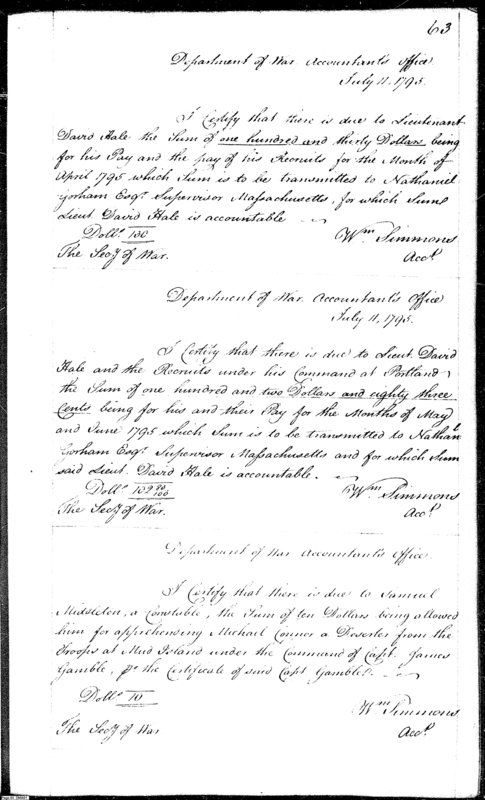 63
Department of War Accountant's Office
July 11, 1795.
I Certify that there is due to Lieutenant
David Hale the Sum of one hundred and thirty Dollars being
for his Pay and the pay of his Recruits for the Month of
April 1795 which Sum is to be transmitted to Nathaniel
Gorham Esqr. Supervisor Massachusetts, for which Sum
Lieut David Hale is accountable
Dolls. 130
Wm Simmons
The Secy of War.
Acct.
Department of War Accountant's Office
July 11, 1795.
I Certify that there is due to Lieut. David
Hale and the Recruits under his Command at Portland
the Sum of one hundred and two Dollars and eighty three
Cents being for his and their Pay for the Months of May
and June 1795 which Sum is to be transmitted to Nathanl
Gorham Esqr. Supervisor Massachusetts and for which Sum
said Lieut. David Hale is accountable.
Dolls. 102
Wm Simmons
The Secy of War.
Acct.
Department of War Accountant's Office.
I Certify that there is due to Samuel
Middleton, a Constable, the Sum of ten Dollars being allowed
him for apprehending Michael Connor a Deserter from the
Troops at Mud Island under the Command of Capt. James
Gamble, the Certificate of said Capt Gamble.
Dolls. 10
Wm Simmons
The Secy of War
Acct.